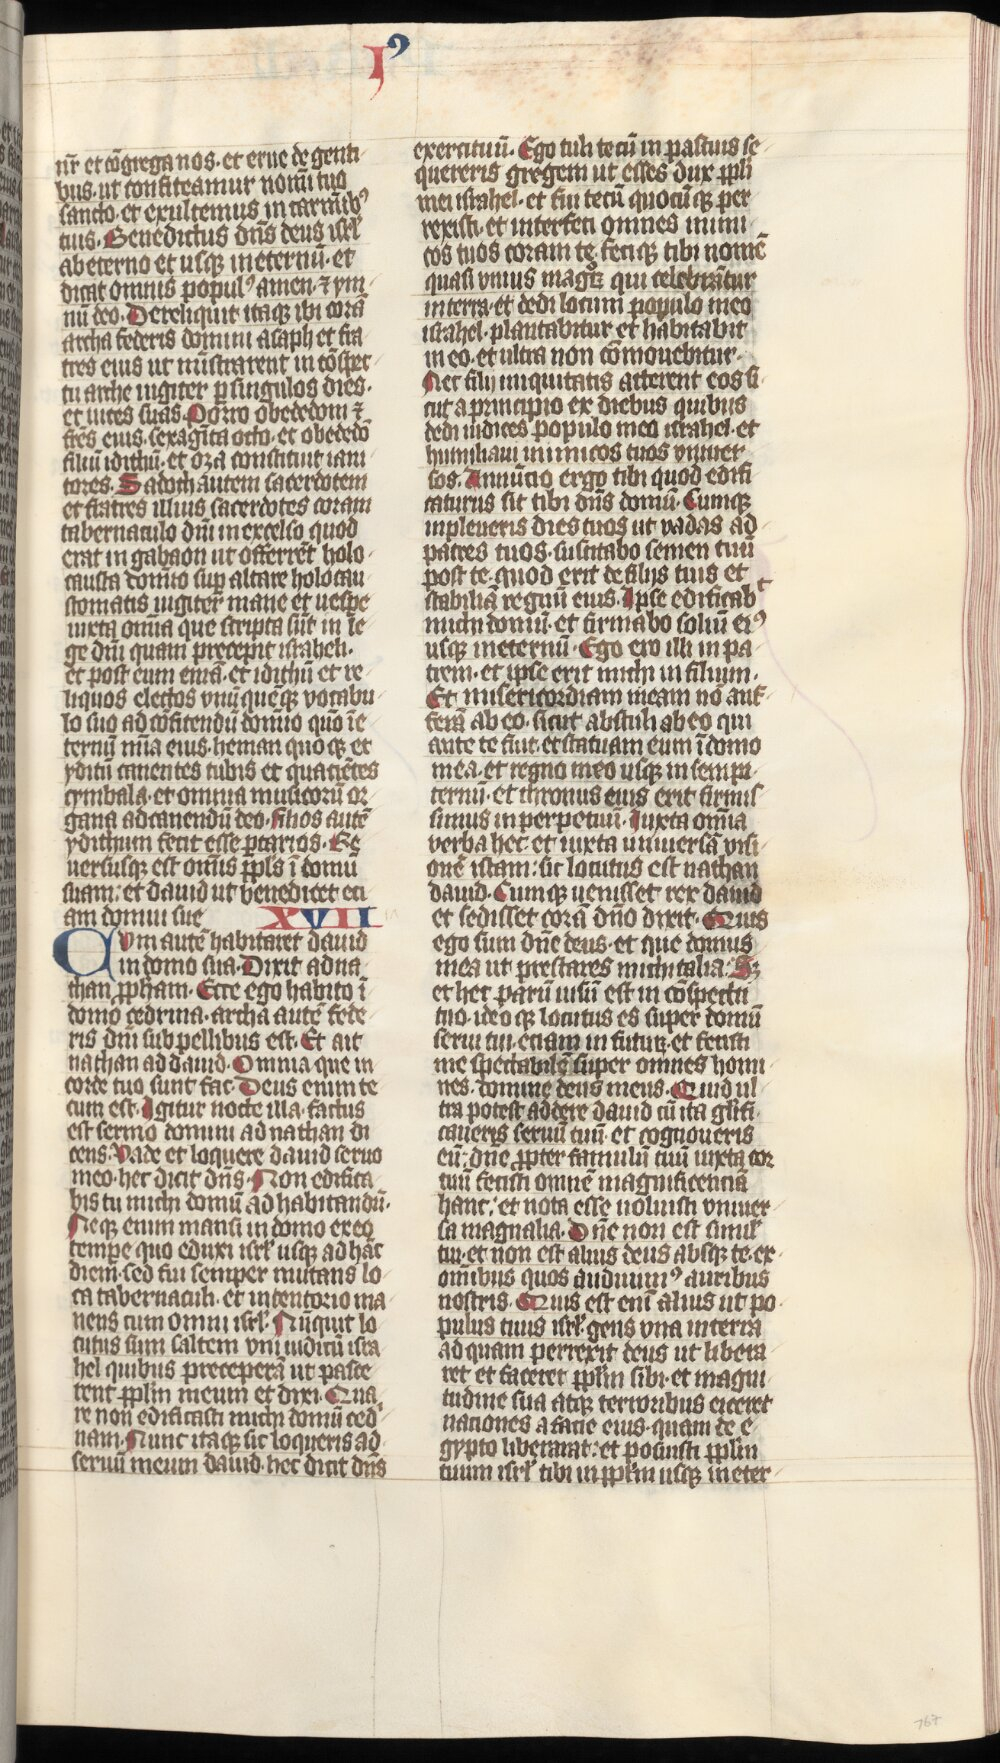 Iꝰ
nr̄ et cōgrega nos· et erue de genti
bus· ut confiteamur nomī tuo
sancto· et exultemus in carmīibꝰ
tuis· Benedictus dn̄s deus isrl̄
ab eterno et usqꝫ in eternū· et
dicat omnis popul̓ amen· ⁊ ym
nū deo· Dereliquit itaqꝫ ibi corā
archa federis domini asaph et fra
tres eius ut mīstrarent in cōspec
tu arche iugiter ꝑ singulos dies·
et uices suas· Porro obededom ⁊
fr̄es eius· sexagīta octo· et obededō
filiū idithū· et oza constituit iani
tores· Sadoch autem sacerdotem
et fratres illius sacerdotes coram
tabernaculo dn̄i in excelso quod
erat in gabaon ut offerrēt holo
causta domino sup altare holocau
stomatis iugiter mane et uespe
iuxta omīa que scripta sūt in le
ge dn̄i quam precepit israheli·
et post eum emā· et idithū et re
liquos electos vnūquēqꝫ vocabu
lo suo ad cōfitendū domino quō ī e
ternū mīa eius· heman quoqꝫ et
yditū canentes tubis et quaciētes
cymbala· et omnia musicorū or
gana ad canendū deo· filios autē
ydithum fecit esse portarios· Re
uersusqꝫ est omīs ppl̄s ī domū
suam· et dauid ut benedicet eci
am domui sue XVII
Cum autē habitaret dauid
in domo sua· Dixit ad na
than ꝓph̄am· Ecce ego habito ī
domo cedrina· archa autē fede
ris dn̄i sub pellibus est· Et ait
nathan ad dauid· Omnia que in
corde tuo sunt fac· Deus enim te
cum est· Igitur nocte illa· factus
est sermo domini ad nathan di
cens· Uade et loquere dauid seruo
meo· hec dicit dn̄s· Non edifica
bis tu michi domū ad habitandū·
Neqꝫ enim mansi in domo ex eo
tempe quo eduxi isrl̄ usqꝫ ad hāc
diem· sed fui semper mutans lo
ca tabernaculi· et in tentorio ma
nens cum omni isrl̄· Nūquit lo
cutus sum saltem vni iudicū isra
hel quibus preceperā ut pasce
rent ppl̄m meum et dixi· Qua
re non edificasti michi domū ced
nam· Nunc itaqꝫ sic loqueris ad
seruū meum dauid· hec dicit dn̄s
exercituū· Ego tuli te cū in pascuis se
quereris gregem ut esses dux ppl̄i
mei israhel· et fui tecū quocūqꝫ per
rexisti· et interfeci omnes inimi
cos tuos coram te· feciqꝫ tibi nomē
quasi vnius magꝝ qui celebrātur
in terra· et dedi locum populo meo
israhel· plantabitur et habitabit
in eo· et ultra non cōmouebitur·
Nec filij iniquitatis atterent eos si
cut a principio ex diebus quibus
dedi iudices populo meo israhel· et
humiliaui inimicos tuos vniuer
sos· Annūcio ergo tibi quod edifi
caturus sit tibi dn̄s domū· Cumqꝫ
inpleueris dies tuos ut vadas ad
patres tuos· suscitabo semen tuū
post te· quod erit de filijs tuis et
stabiliā regnū eius· Ipse edificabit
michi domū· et firmabo soliū eiꝰ
usqꝫ in eternū· Ego ero illi in pa
trem· et ipse erit michi in filium·
Et misericordiam meam nō auf
ferā ab eo· sicut abstuli ab eo qui
ante te fuit· et statuam eum ī domo
mea· et regno meo usqꝫ in sempi
ternū· et thronus eius erit firmis
simus in perpetuū· Iuxta omīa
verba hec· et iuxta uniuersā visi
onē istam· sic locutus est nathan
dauid· Cumqꝫ uenisset rex dauid
et sedisset corā dn̄o dixit· Quis
ego sum dn̄e deus· et que domus
mea ut prestares michi talia· Sꝫ
et hec parū uisū est in cōspectu
tuo· ideoqꝫ locutus es super domū
serui tui· etiam in futuꝝ· et fecisti
me spectabilē super omnes homi
nes· domine deus meus· Quid ul
tra potest addere dauid cū ita glīfi
caueris seruū tuū· et cognoueris
eū· dn̄e ꝓpter famulū tuū iuxta cor
tuū fecisti omnē magnificenciā
hanc· et nota esse uoluisti vniuer
sa magnalia· Dn̄e non est simil̄
tui· et non est alius deus absqꝫ te· ex
omībus quos audiuimꝰ auribus
nostris· Quis est enī alius ut po
pulus tuus isrl̄· gens vna in terra
ad quam perrexit deus ut libera
ret et faceret ppl̄m sibi· et magni
tudine sua atqꝫ terroribus eiceret
naciones a facie eius· quam de e
gypto liberarat· et posuisti ppl̄m
tuum isrl̄ tibi in ppl̄m usqꝫ in eter
767